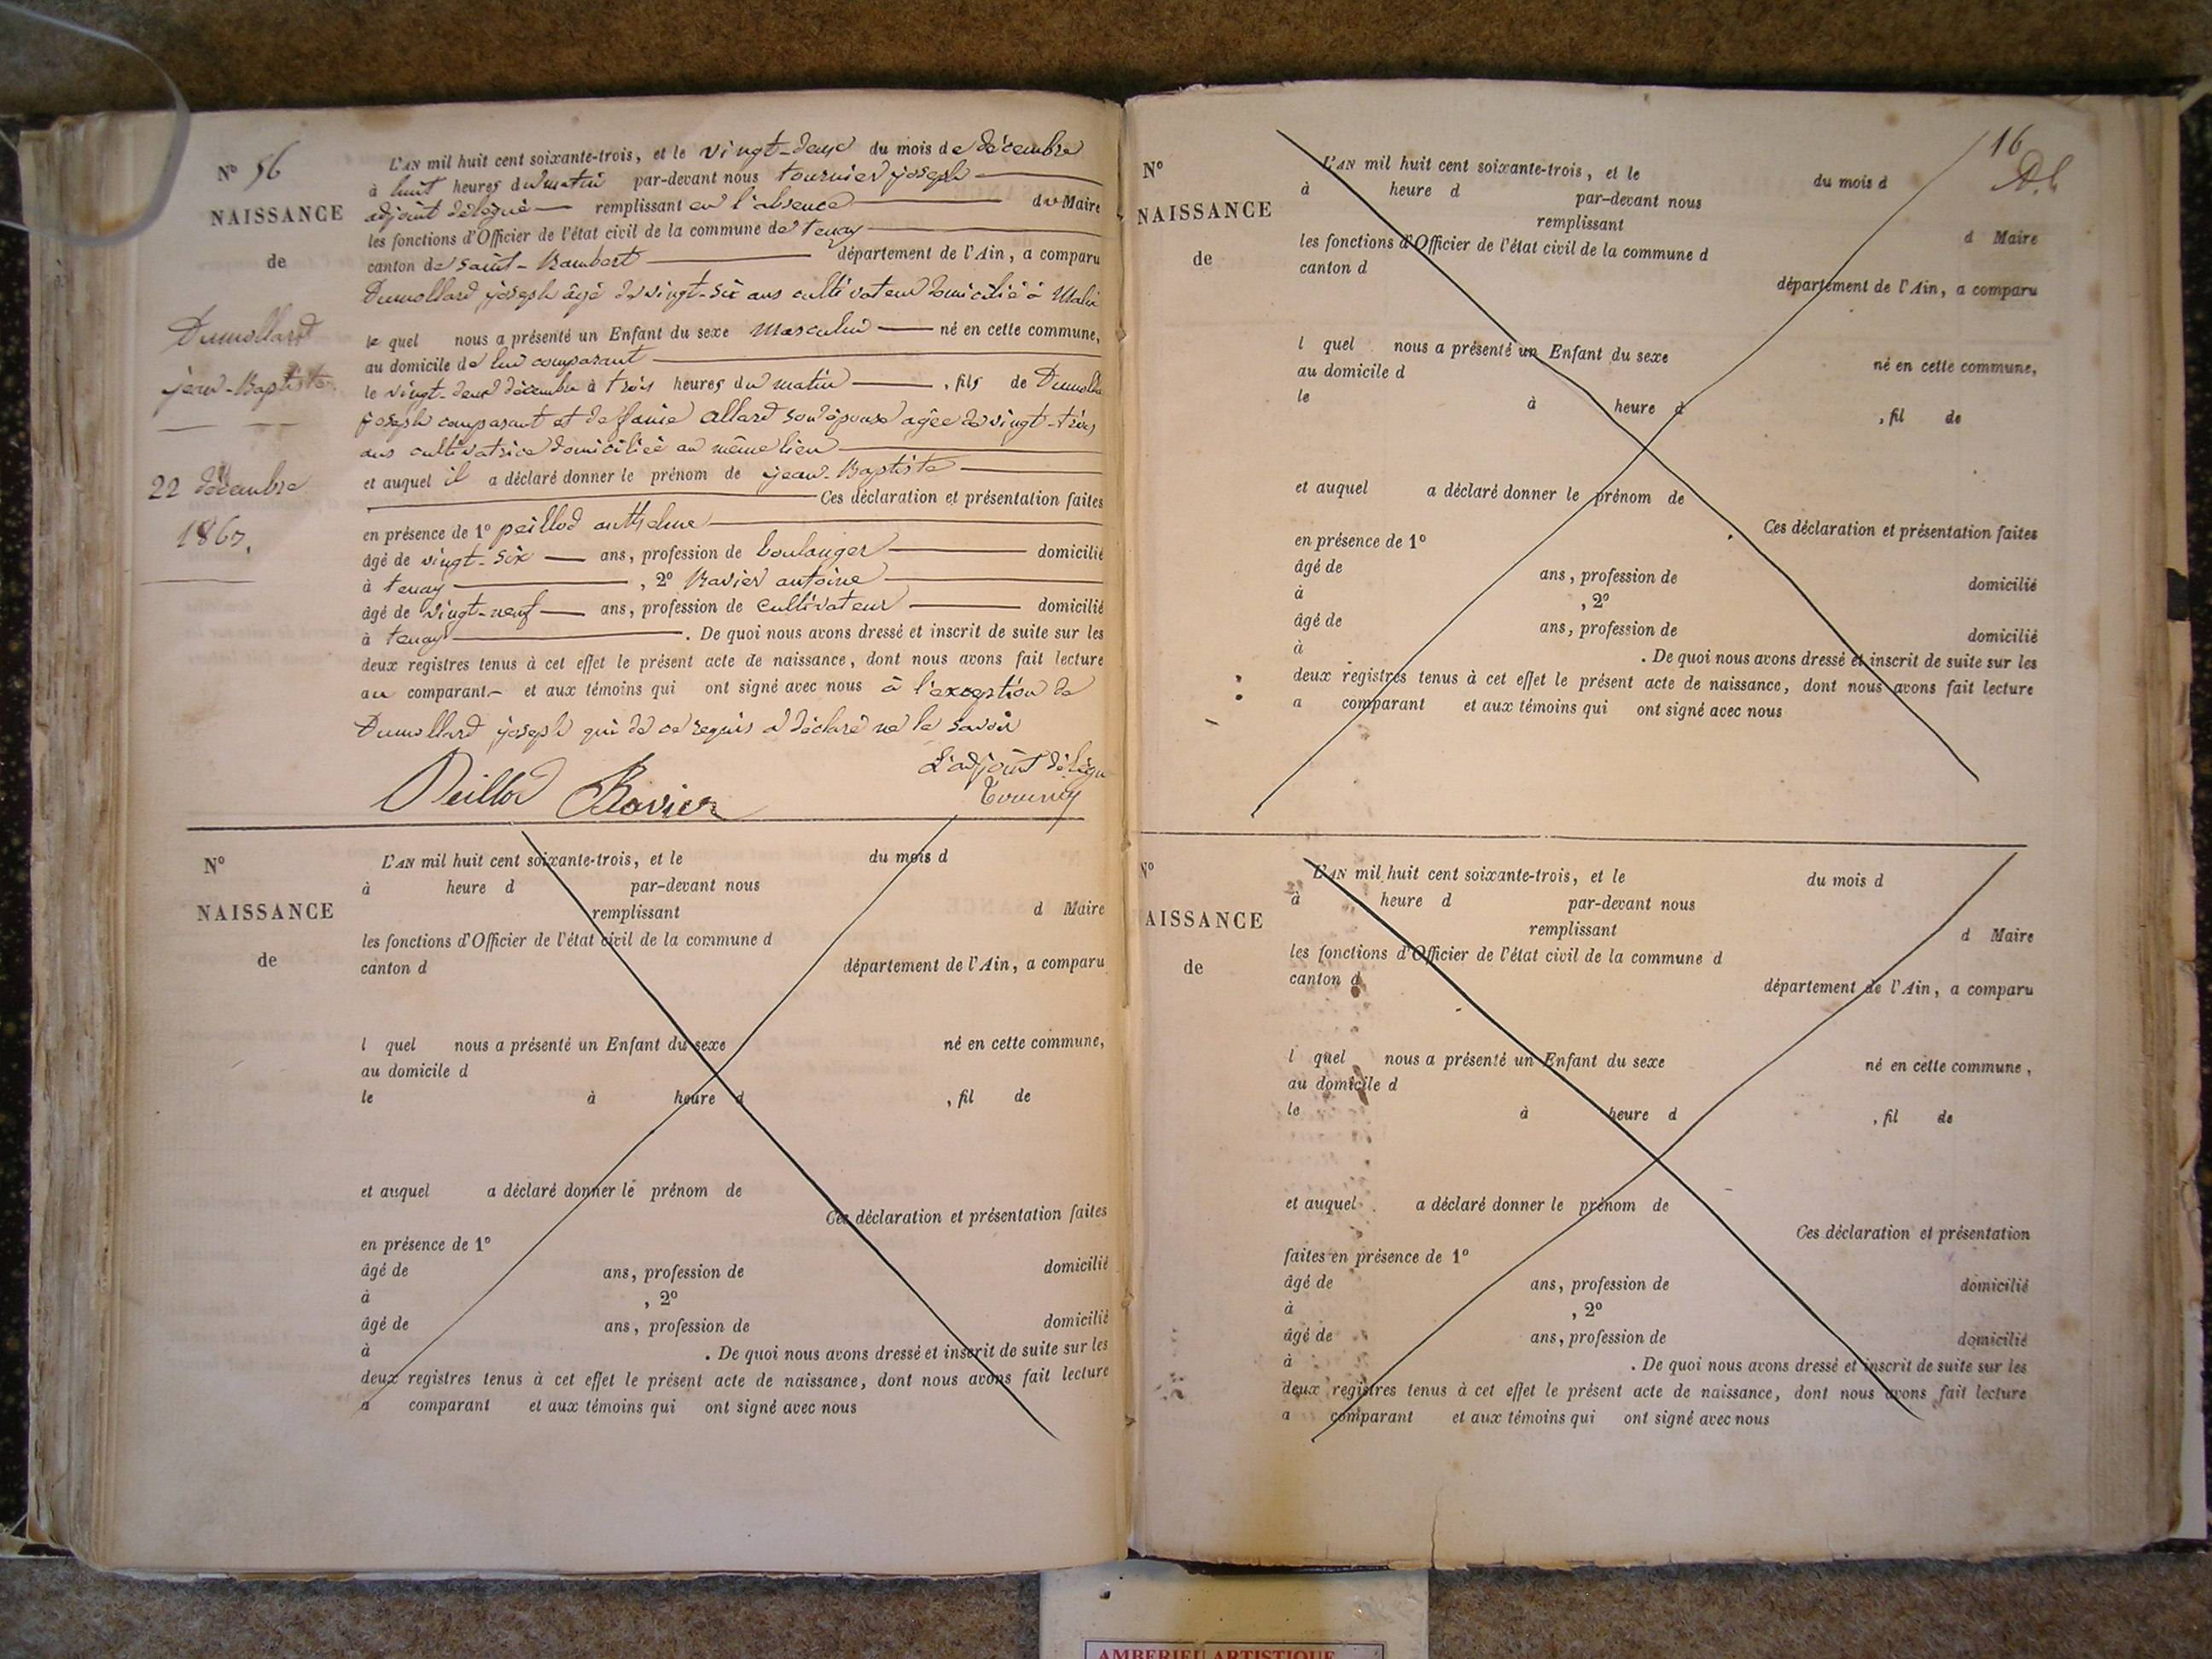 N° 56
NAISSANCE
de
Dumollard
jean-Baptiste
22 décembre
1863.
L'AN mil huit cent soixante-trois, et le vingt-deux du mois de décembre
à huit heures du matin par-devant nous tournier joseph
adjoint délégué remplissant en l'absence du Maire
les fonctions d'Officier de l'état civil de la commune de tenay
canton de saint-Rambert département de l'Ain, a comparu
Dumollard joseph âgé de vingt-six ans cultivateur domicilié à
le quel nous a présenté un Enfant du sexe Masculin né en cette commune,
au domicile de lui comparant
le vingt-deux décembre à trois heures du matin , fils de
joseph comparant et de allard son épouse agée de vingt-trois
ans cultivatrice domiciliée au même lieu
et auquel il a déclaré donner le prénom de jean-Baptiste
Ces déclaration et présentation faites
en présence de 1° peillod anthelme
âgé de vingt-six ans, profession de boulanger domicilié
à tenay , 2° Ravier antoine
âgé de vingt-neuf ans, profession de cultivateur domicilié
à tenay . De quoi nous avons dressé et inscrit de suite sur les
deux registres tenus à cet effet le présent acte de naissance, dont nous avons fait lecture
au comparant et aux témoins qui ont signé avec nous à l'exception de
Dumollard joseph qui de ce requis a déclaré ne le savoir
L'adjoint délégué
Peillod Ravier
N°
NAISSANCE
de
L'AN mil huit cent soixante-trois, et le du mois d
à heure d par-devant nous
remplissant d Maire
les fonctions d'Officier de l'état civil de la commune d
canton d département de l'Ain, a comparu
l quel nous a présenté un Enfant du sexe né en cette commune,
au domicile d
le à heure d , fil de
et auquel a déclaré donner le prénom de
Ces déclaration et présentation faites
en présence de 1°
âgé de ans, profession de domicilié
à , 2°
âgé de ans, profession de domicilié
à . De quoi nous avons dressé et inscrit de suite sur les
deux registres tenus à cet effet le présent acte de naissance, dont nous avons fait lecture
a comparant et aux témoins qui ont signé avec nous
16
N°
NAISSANCE
de
L'AN mil huit cent soixante-trois, et le du mois d
à heure d par-devant nous
remplissant d Maire
les fonctions d'Officier de l'état civil de la commune d
canton d département de l'Ain, a comparu
l quel nous a présenté un Enfant du sexe né en cette commune,
au domicile d
le à heure d , fil de
et auquel a déclaré donner le prénom de
Ces déclaration et présentation faites
en présence de 1°
âgé de ans, profession de domicilié
à , 2°
âgé de ans, profession de domicilié
à . De quoi nous avons dressé et inscrit de suite sur les
deux registres tenus à cet effet le présent acte de naissance, dont nous avons fait lecture
a comparant et aux témoins qui ont signé avec nous
N°
AISSANCE
de
L'AN mil huit cent soixante-trois, et le du mois d
à heure d par-devant nous
remplissant d Maire
les fonctions d'Officier de l'état civil de la commune d
canton d département de l'Ain, a comparu
l quel nous a présenté un Enfant du sexe né en cette commune,
au domicile d
le à heure d , fil de
et auquel a déclaré donner le prénom de
Ces déclaration et présentation
faites en présence de 1°
âgé de ans, profession de domicilié
à , 2°
âgé de ans, profession de domicilié
à . De quoi nous avons dressé et inscrit de suite sur les
deux registres tenus à cet effet le présent acte de naissance, dont nous avons fait lecture
a comparant et aux témoins qui ont signé avec nous
AMBERIEU ARTISTIQUE